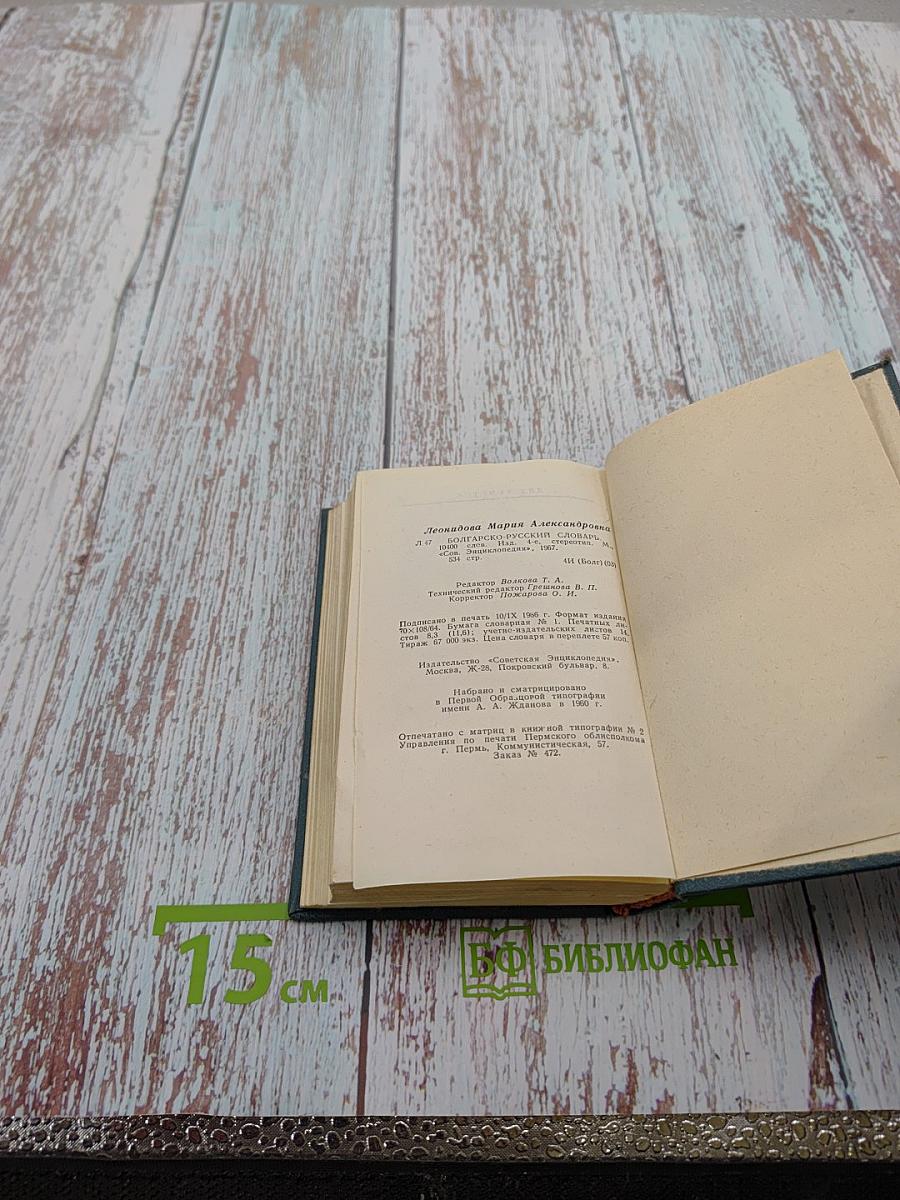 Леонидова Мария Александровна
Л 47 БОЛГАРСКО-РУССКИЙ СЛОВАРЬ.
10400 слов. Изд. 4-е, стереотип. М.,
«Сов. Энциклопедия», 1967.
534 стр.
4И (Болг) (03)
Редактор Волкова Т. А.
Технический редактор Грешнова В. П.
Корректор Пожарова О. И.
Подписано в печать 10/IX 1966 г. Формат издания
70×108/64. Бумага словарная № 1. Печатных ли-
стов 8,3 (11,6); учетно-издательских листов 14.
Тираж 67 000 экз. Цена словаря в переплете 57 коп.
Издательство «Советская Энциклопедия».
Москва, Ж-28, Покровский бульвар, 8.
Набрано и сматрицировано
в Первой Образцовой типографии
имени А. А. Жданова в 1960 г.
Отпечатано с матриц в книжной типографии № 2
Управления по печати Пермского облисполкома
г. Пермь, Коммунистическая, 57.
Заказ № 472.
15 см
БФ БИБЛИОФАН